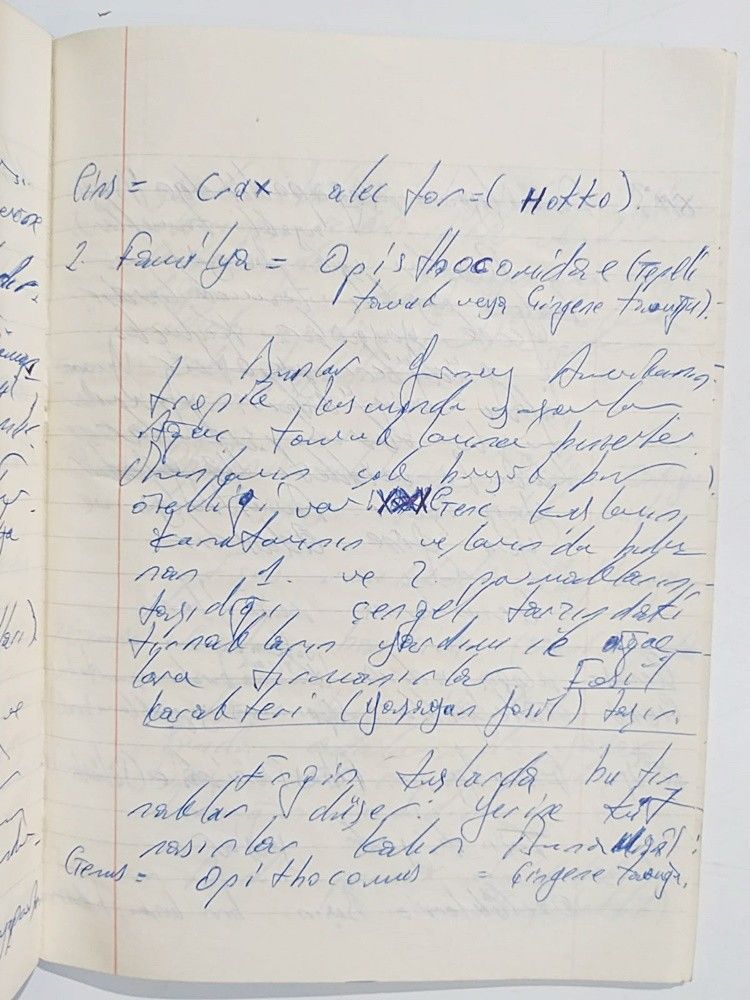 Cins = Crax alector = (Hokko).
2. Familya = Opisthocomidae (Tepeli
tavuk veya Çingene tavuğu).
Bunlar Güney Amerikanın
tropik kısmında yaşarlar
Ağaç tavuklarına benzerler.
Bunların çok büyük bir
özelliği var! Genç kuşların
kanatlarının uçlarında bulu-
nan 1. ve 2. parmaklarının
taşıdığı çengel tarzındaki
tırnakların yardımı ile ağaç-
lara tırmanırlar Fosil
karakteri (yaşayan fosil) taşır.
Ergin kuşlarda bu tır
naklar düşer. Yerine
nasırlar kalır
Genus = Opithocomus = Çingene tavuğu.